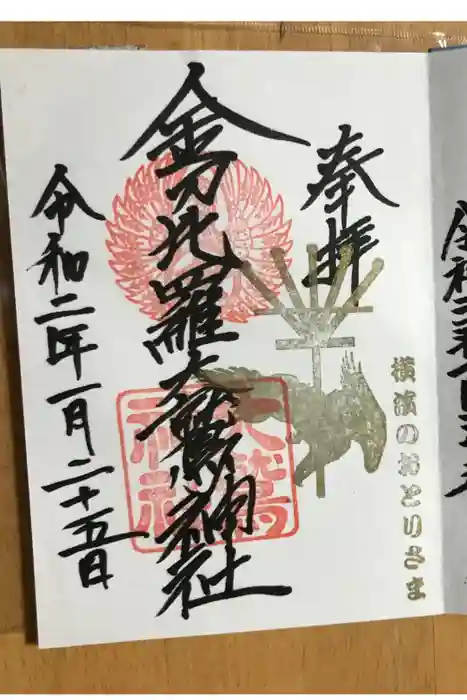 奉拝
横濱のおとりさま
金刀比羅大鷲神社
大鷲神社
令和二年一月二十五日